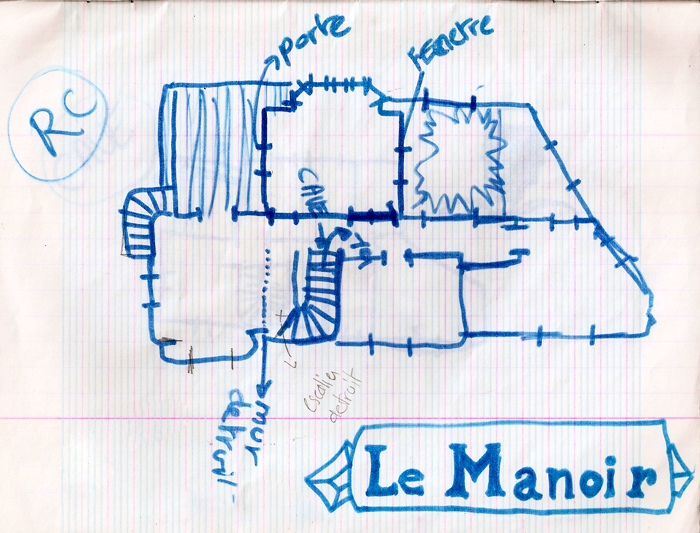 porte
Fenetre
RC
CAVE
mur
detruit
escalier
detruit
Le Manoir